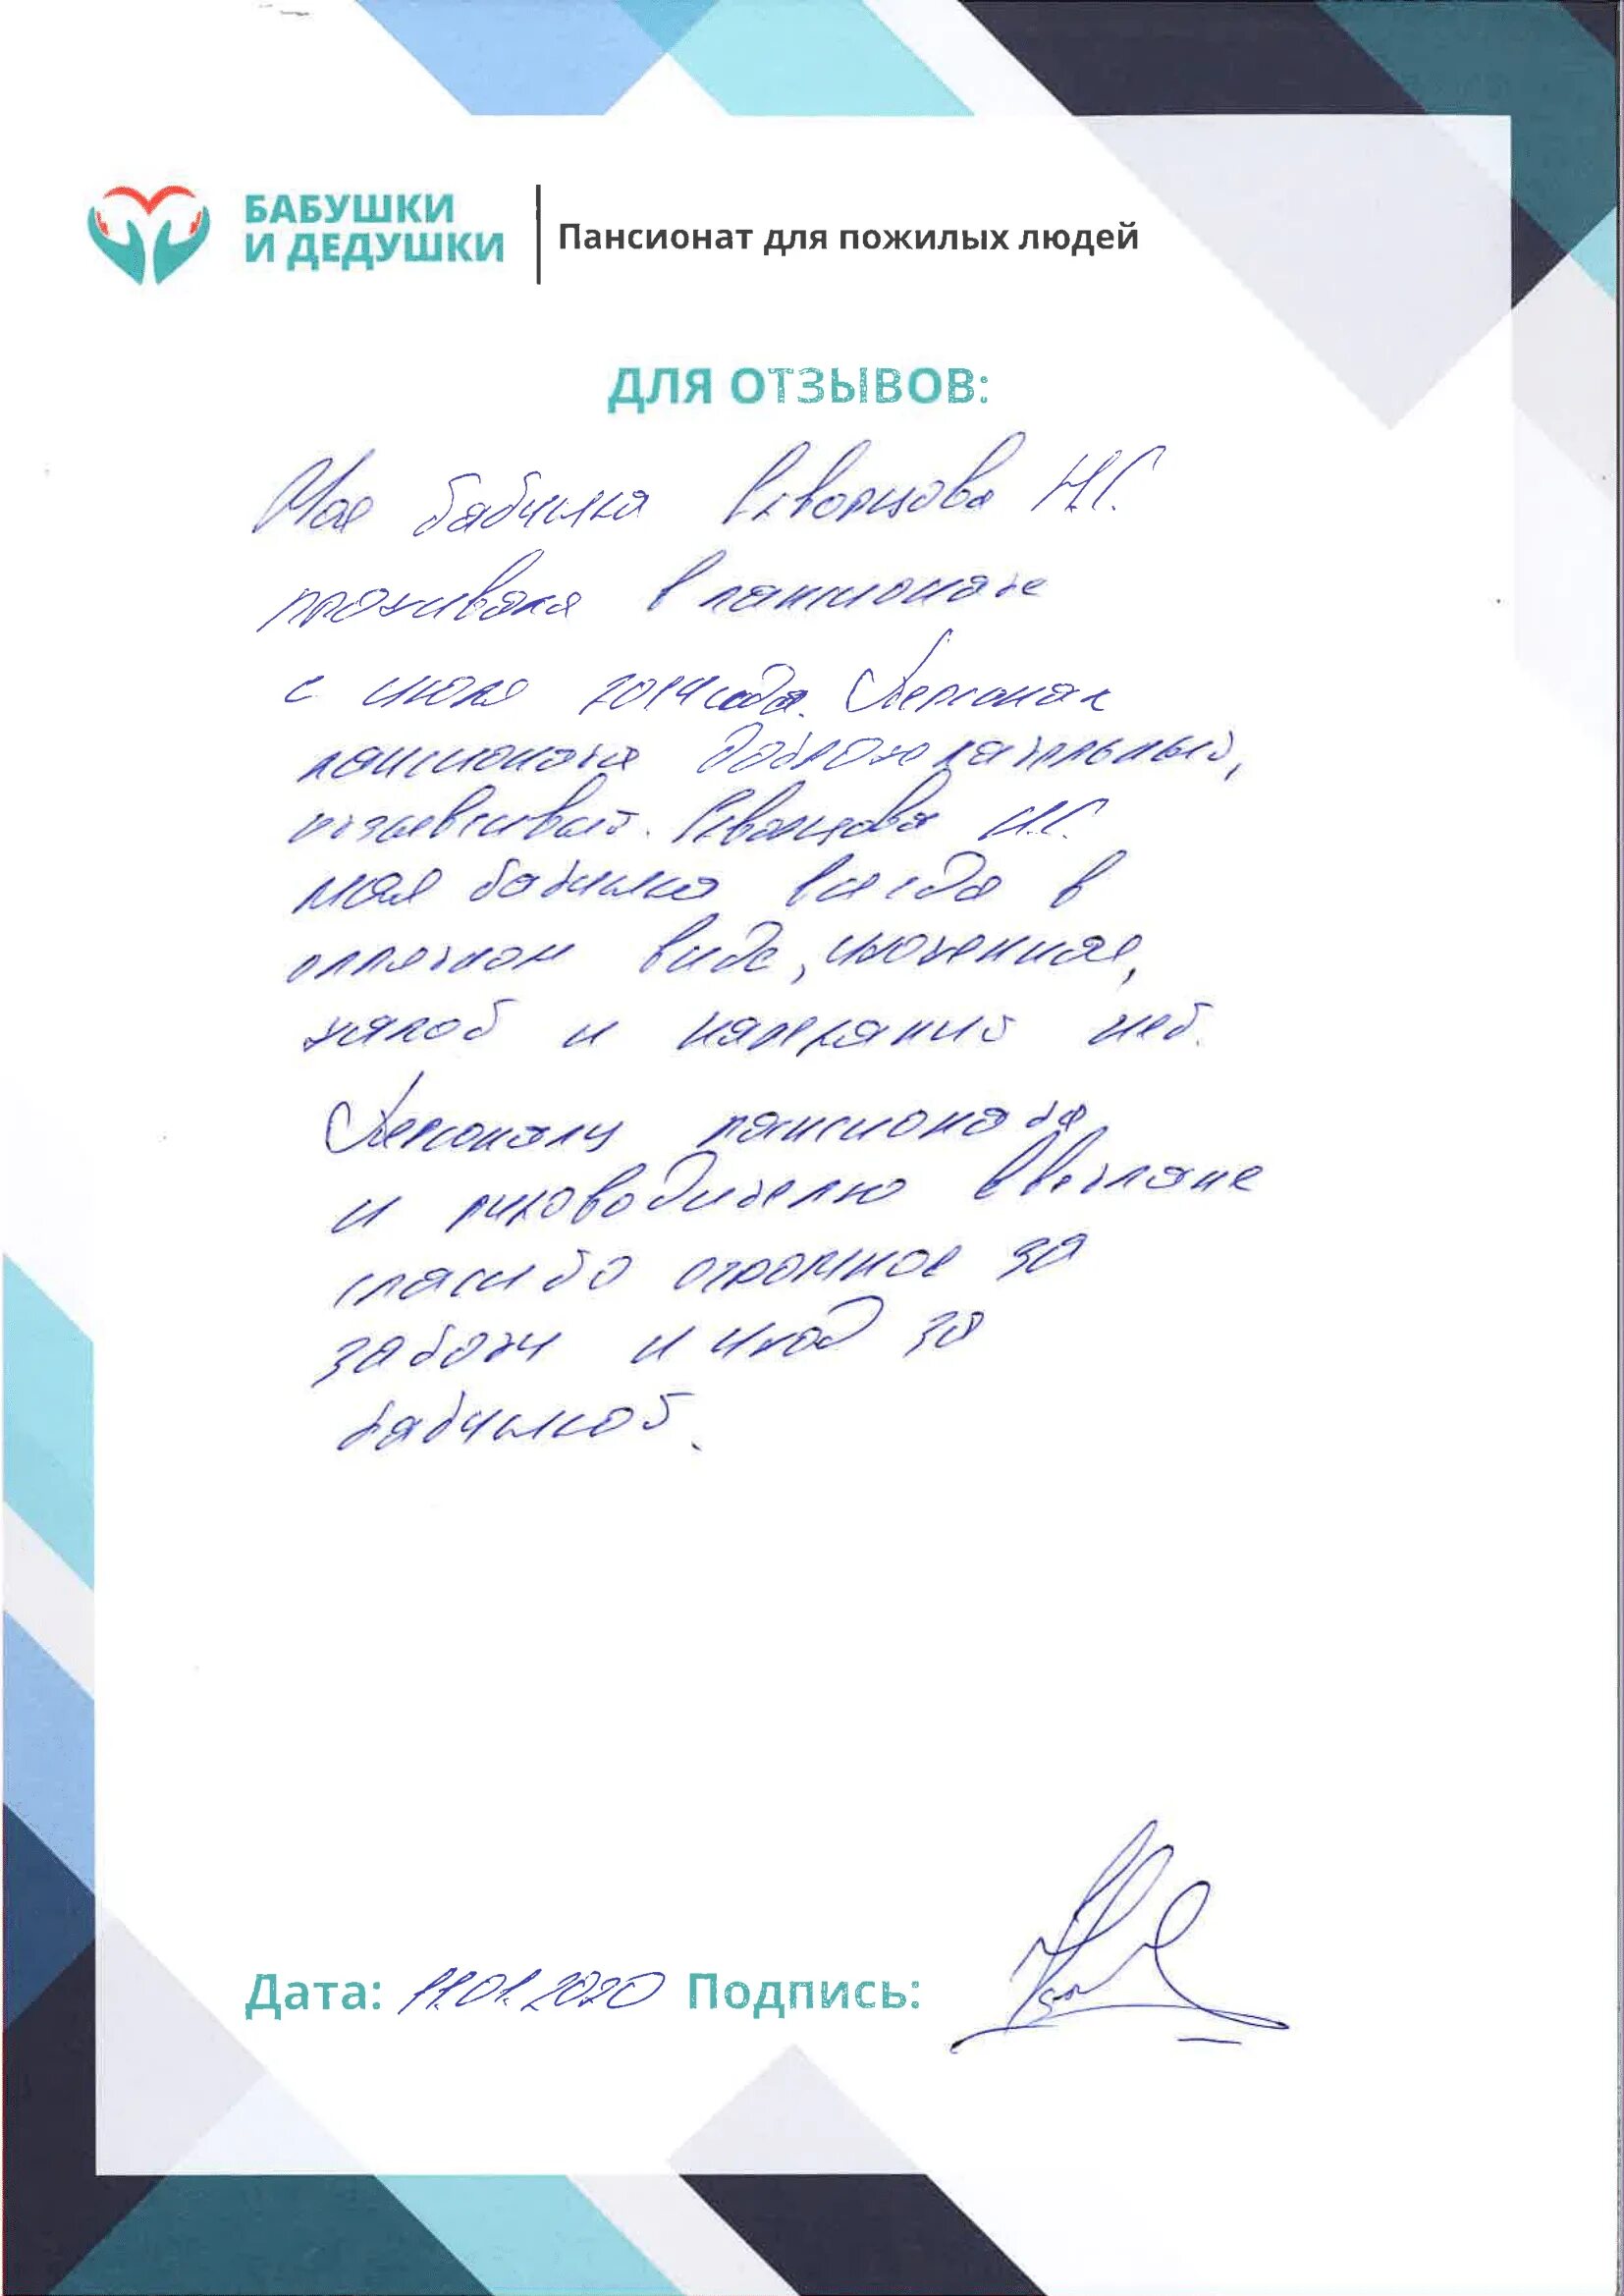 БАБУШКИ
И ДЕДУШКИ
Пансионат для пожилых людей
ДЛЯ ОТЗЫВОВ:
Моя бабушка Скворцова Н.С.
проживала в пансионате
с июля 2019 года. Персонал
пансионата доброжелательный,
отзывчивый. Скворцова Н.С.
моя бабушка всегда в
опрятном виде, ухоженная,
жалоб и нареканий нет.
Персоналу пансионата
и руководителю Светлане
спасибо огромное за
заботу и уход за
бабушкой.
Дата: 11.01.2020 Подпись: